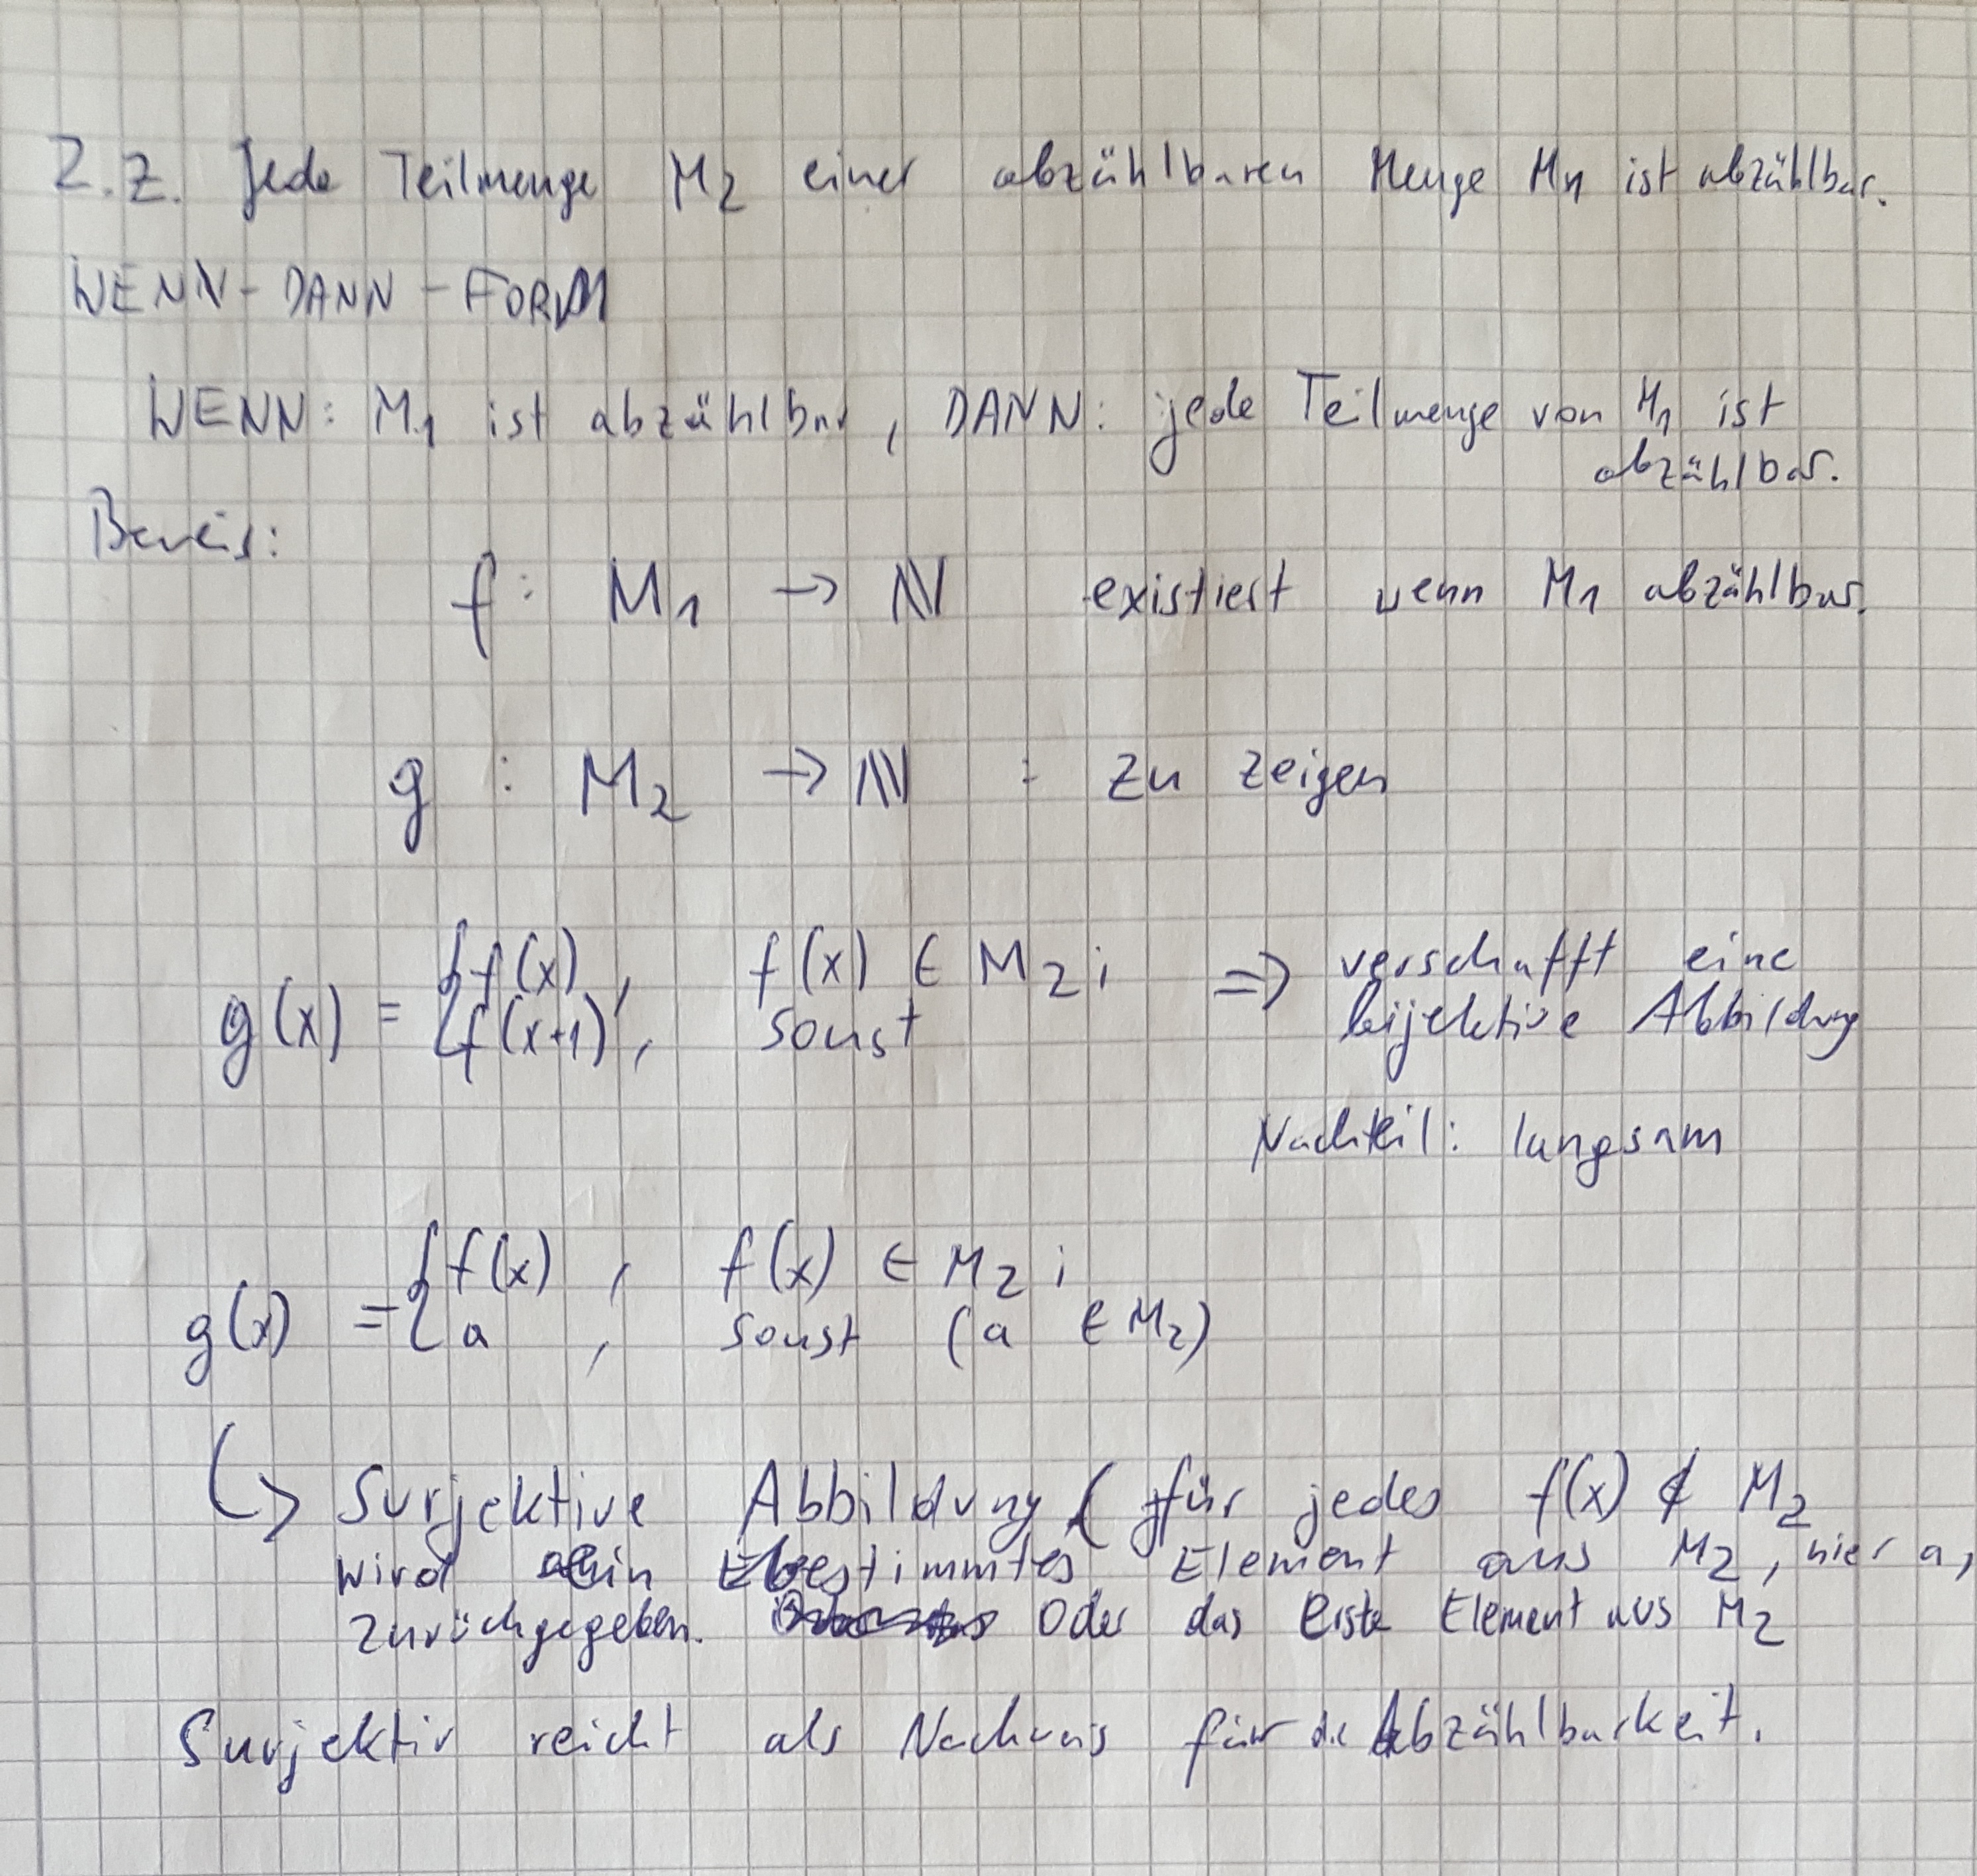 Z.Z. Jede Teilmenge M₂ einer abzählbaren Menge M₁ ist abzählbar.
WENN-DANN-FORM
WENN: M₁ ist abzählbar, DANN: jede Teilmenge von M₁ ist
abzählbar.
Beweis:
f: M₁ → ℕ existiert wenn M₁ abzählbar.
g : M₂ → ℕ : zu zeigen
g(x) = { f(x), f(x) ∈ M₂; ⇒ verschafft eine
f(x+1), sonst bijektive Abbildung
Nachteil: langsam
g(x) = { f(x), f(x) ∈ M₂;
a, sonst (a ∈ M₂)
↳ Surjektive Abbildung ( für jedes f(x) ∉ M₂
wird ein bestimmtes Element aus M₂, hier a,
zurückgegeben. Oder das erste Element aus M₂
Surjektiv reicht als Nachweis für die Abzählbarkeit.